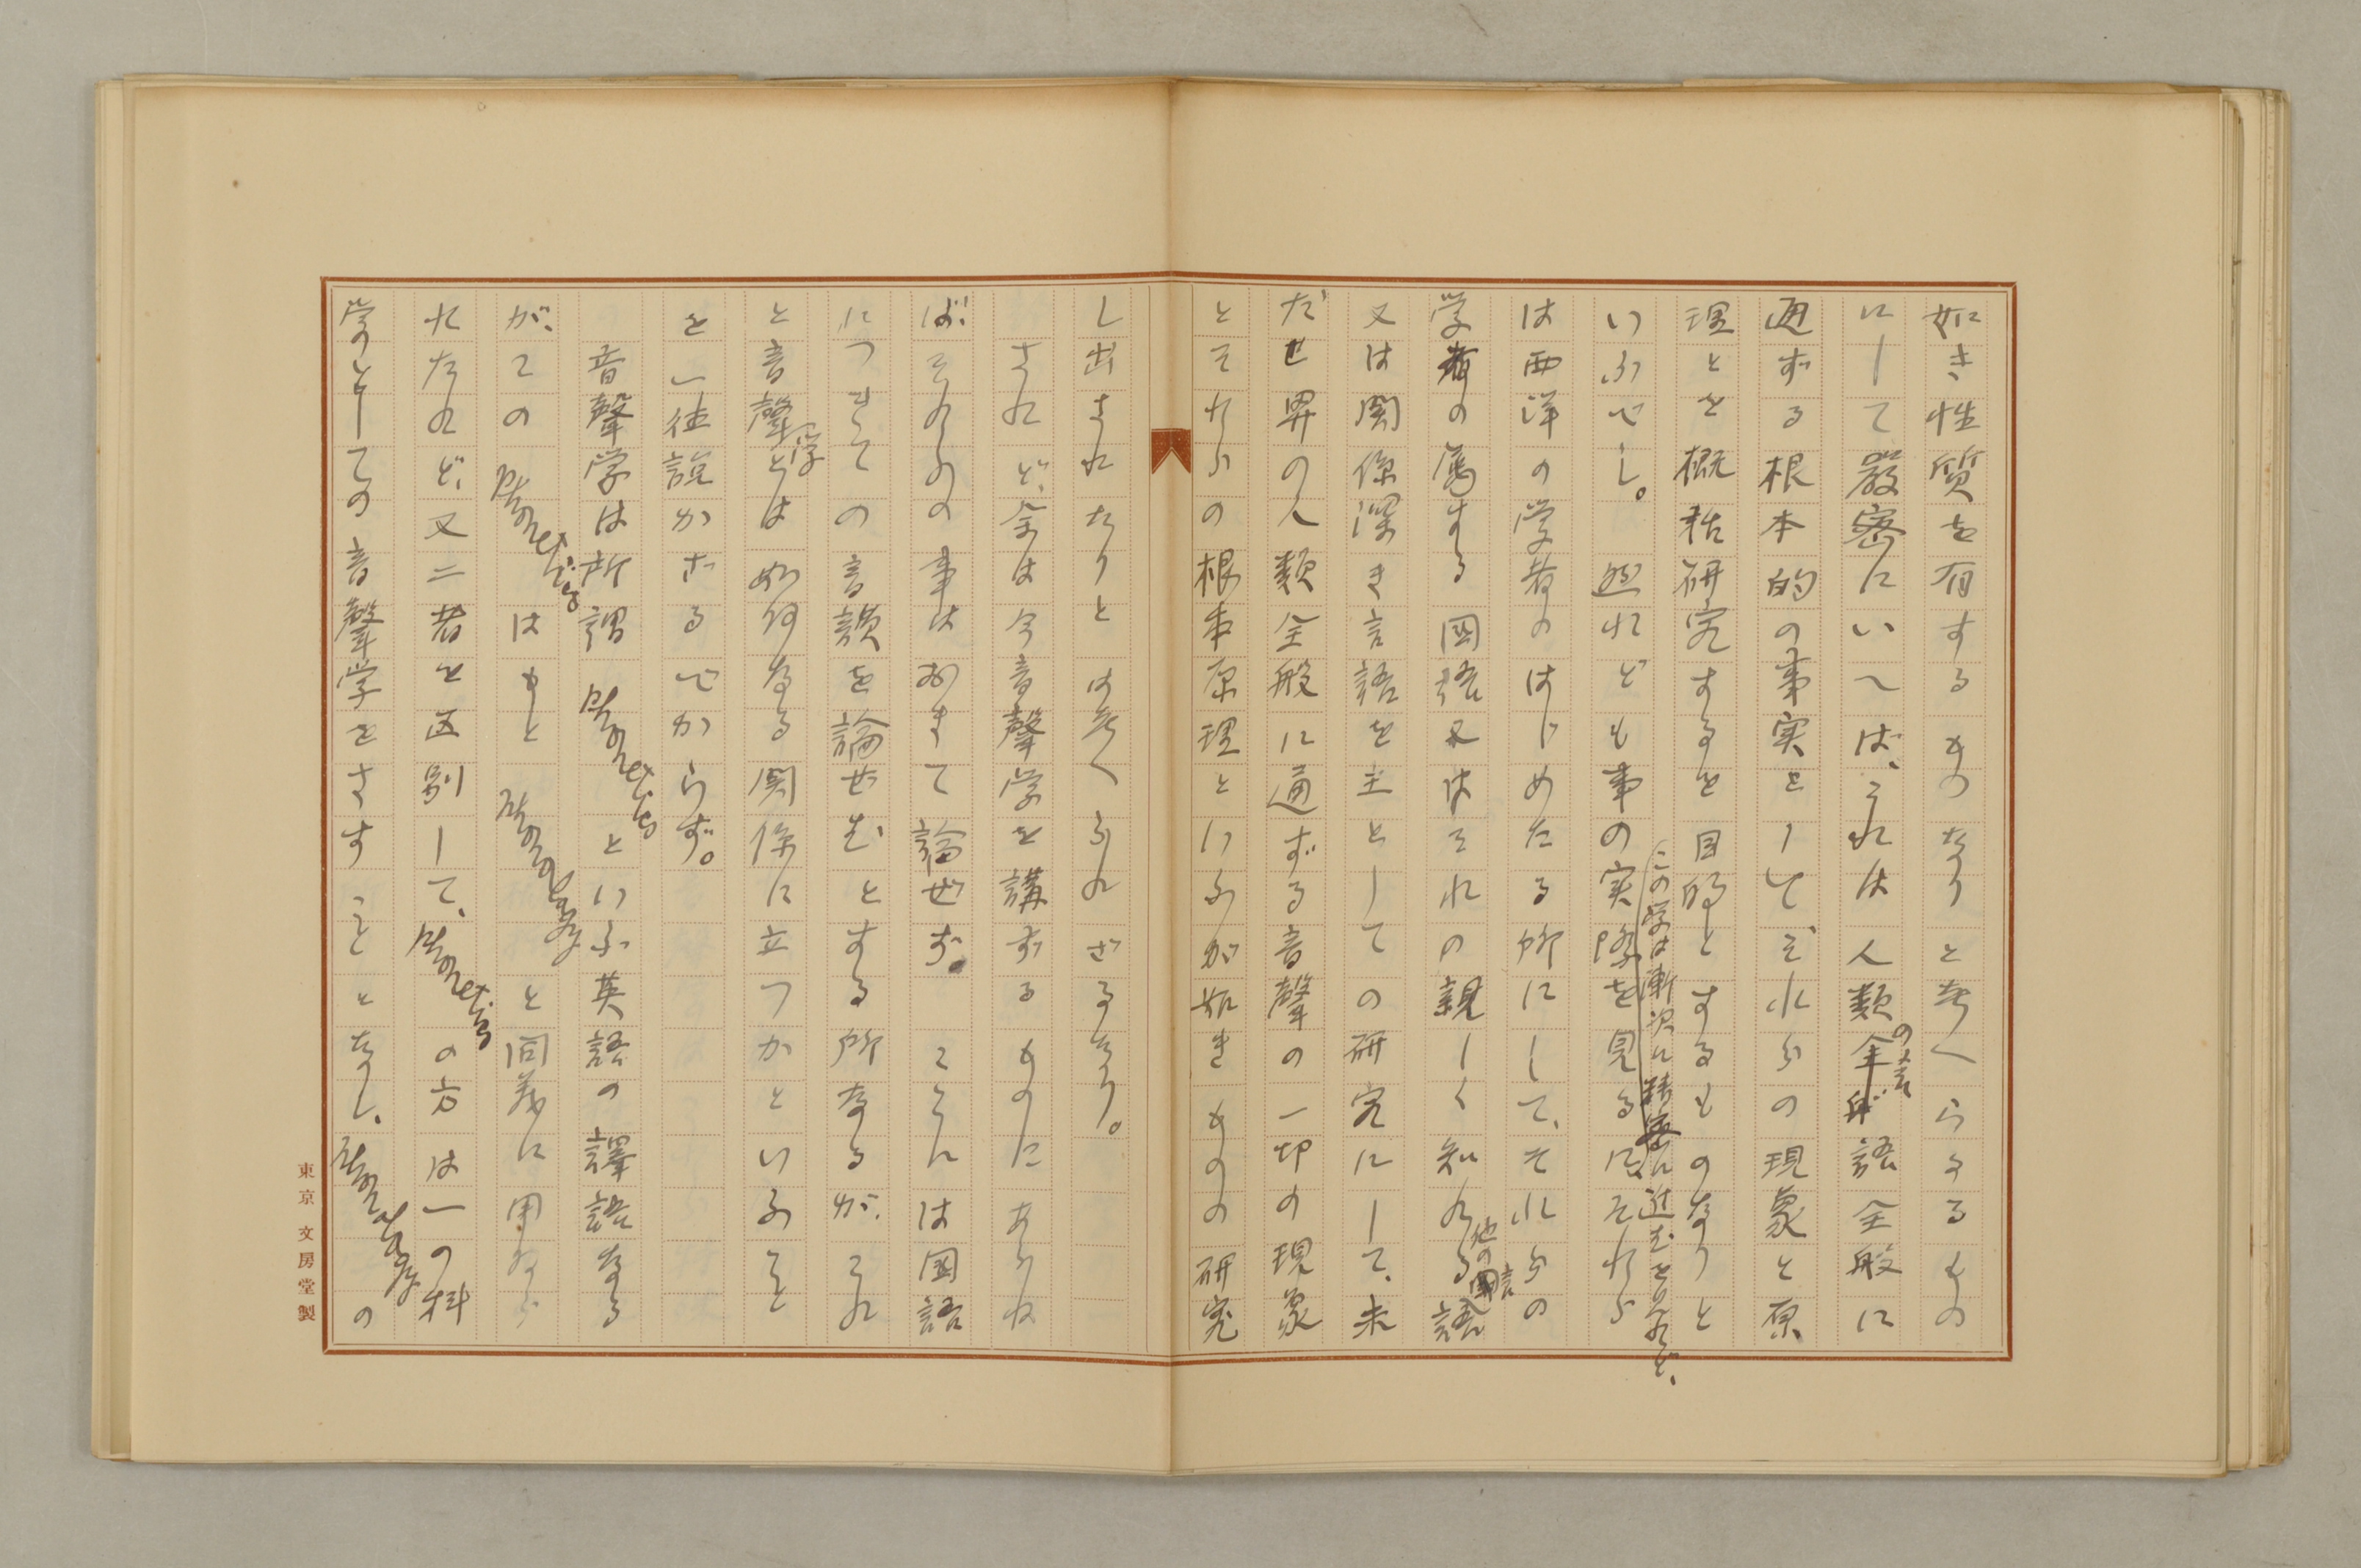 如き性質を有するものなりと考へらるるもの
にして嚴密にいへば、これは人類の言語全般に
通ずる根本的の事実としてそれらの現象と原
理とを概括研究するを目的とするものなりと
いふべし。然れども事の実際を見るに、それら
この学は漸次に精密に進むをえたれど、
は西洋の学者のはじめたる所にして、それらの
学者の属する國語又はそれの親しく知れる他の國言語
又は関係深き言語を主としての研究にして、未
だ世界の人類全般に通ずる音聲の一切の現象
とそれらの根本原理といふが如きものの研究
し出されたりとは考へられざるなり。
されど、余は今音聲学を講ずるものにあらね
ば、それらの事はおきて論ぜず。ここには國語
につきての音韻を論ぜむとする所なるが、これ
と音聲学とは如何なる関係に立つかといふこと
を一往説かざるべからず。
音聲学は所謂 Phonetics といふ英語の譯語なる
が、この Phonetics はもと Phonology と同義に用ゐら
れたれど、又二者を区別して、Phonetics の方は一の科
学としての音聲学をさすこととなし、Phonology の
東京 文房堂製